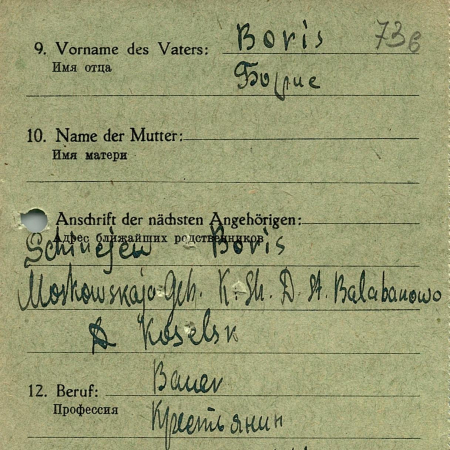 9. Vorname des Vaters: Boris 73в
Имя отца Борис
10. Name der Mutter:
Имя матери
Anschrift der nächsten Angehörigen:
Адрес ближайших родственников
Schirejew Boris
Moskowskaja Geb. K. Sh. D. St. Balabanowo
D Koselsk
12. Beruf: Bauer
Профессия Крестьянин